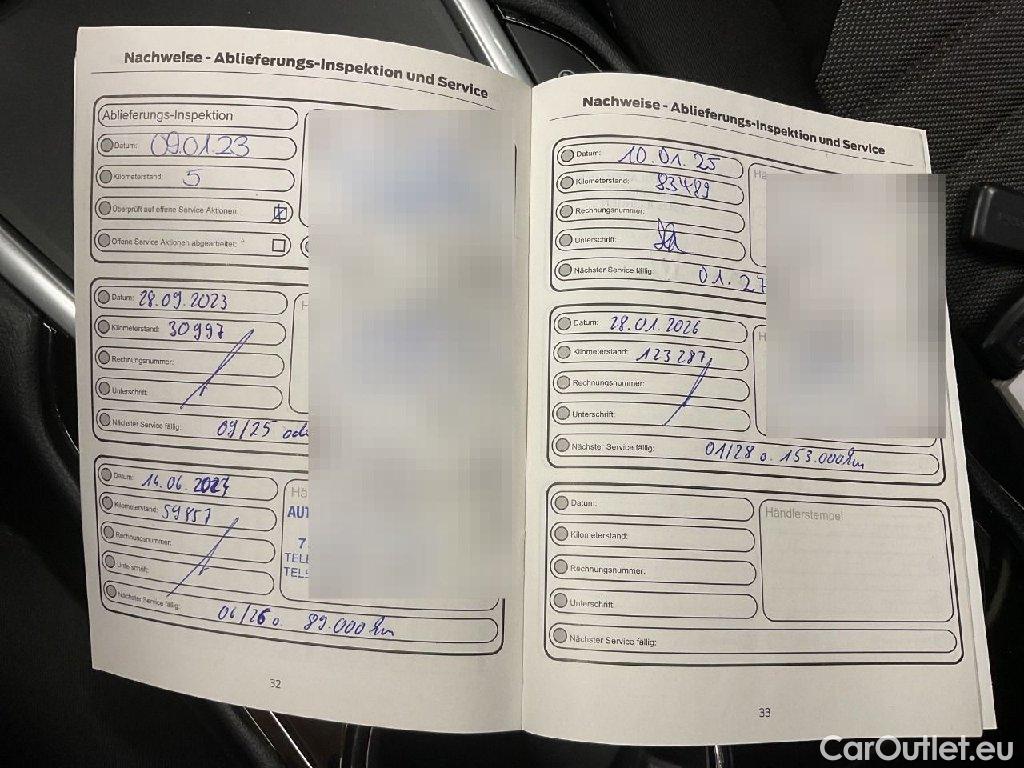 Nachweise - Ablieferungs-Inspektion und Service
Ablieferungs-Inspektion
Datum: 09.01.23
Kilometerstand: 5
Überprüft auf offene Service Aktionen:
Offene Service Aktionen abgearbeitet:
Datum: 28.09.2023
Kilometerstand: 30997
Rechnungsnummer:
Unterschrift:
Nächster Service fällig: 09/25
Datum: 14.06.
Kilometerstand: 59857
AUT
Rechnungsnummer:
7
TELE
Unterschrift:
Nächster Service fällig:
06/26 o. 89.000 km
32
Nachweise - Ablieferungs-Inspektion und Service
Datum: 10.01.25
Kilometerstand: 83489
Rechnungsnummer:
Unterschrift:
Nächster Service fällig: 01.27
Datum: 28.01.2026
Kilometerstand: 123287
Rechnungsnummer:
Unterschrift:
Nächster Service fällig: 01/28 o. 153.000 km
Datum:
Händlerstempel
Kilometerstand:
Rechnungsnummer:
Unterschrift:
Nächster Service fällig:
33
CarOutlet.eu